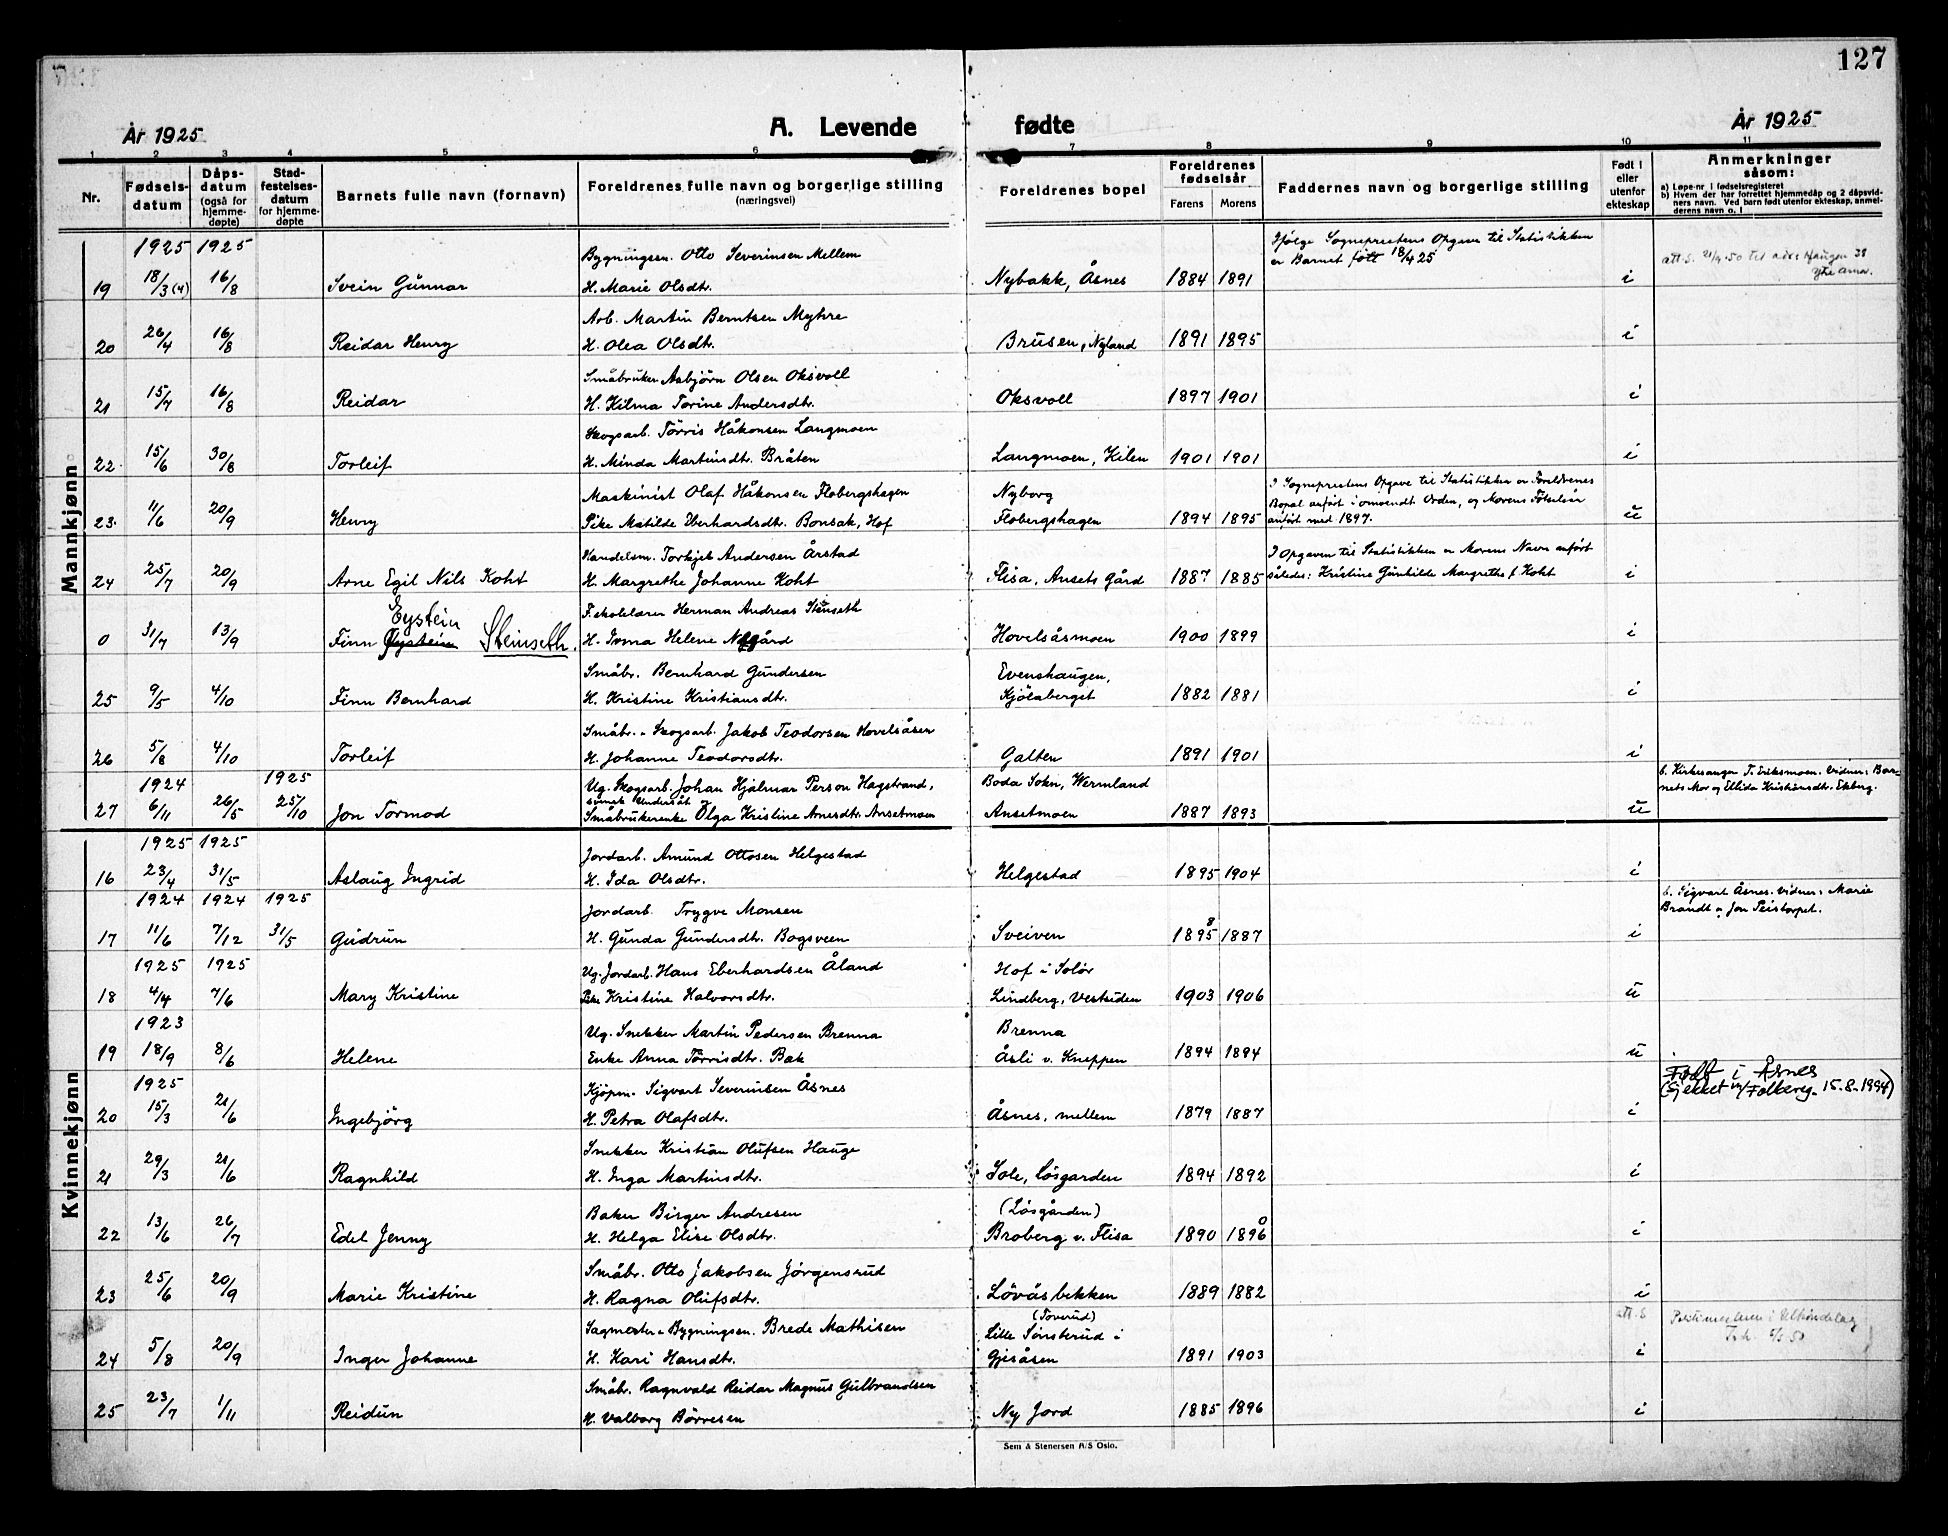 127
År 1925
A. Levende fødte
År 1925
1 2 3 4 5 6 7 8 9 10 11
Nr.
Fødsels-
datum
Dåps-
datum
(også for
hjemme-
døpte)
Stad-
festelses-
datum
for hjemme-
døpte
Barnets fulle navn (fornavn)
Foreldrenes fulle navn og borgerlige stilling
(næringsvei)
Foreldrenes bopel
Foreldrenes
fødselsår
Farens Morens
Faddernes navn og borgerlige stilling
Født i
eller
utenfor
ekteskap
Anmerkninger
såsom:
a) Løpe-nr i fødselsregisteret
b) Hvem der har forrettet hjemmedåp og 2 dåpsvid-
ners navn. Ved barn født utenfor ekteskap, anmel-
derens navn o. l
Mannkjønn
1925 1925 Bygningssn. Otto Severinsen Mellem Ifølge Sogneprestens Opgave til Statistikken
er Barnet født 18/4 25
19 18/3 (4) 16/8 Svein Gunnar H. Marie Olsdtr. Nybakk, Åsnes 1884 1891 i
att. S. 21/9.50 til
Arb. Martin Berntsen Myhre
20 26/4 16/8 Reidar Henry H. Olea Olsdtr. Brusen, Nyland 1891 1895 i
Småbruker Asbjørn Olsen Oksvoll
21 15/7 16/8 Reidar H. Hilma Torine Andersdtr. Oksvoll 1897 1901 i
Skogsarb. Tørris Håkonsen Langmoen
22 15/6 30/8 Torleif H. Minda Martinsdtr. Bråten Langmoen, Kilen 1901 1901 i
Maskinist Olaf Håkonsen Flobergshagen Nyborg I Sogneprestens Opgave til Statistikken er Foreldrenes
Bopæl anført i omvendt Orden, og Morens Fødselsår
23 11/6 20/9 Henry Pike Matilde Eberhardsdtr. Bonsak, Hof Flobergshagen 1894 1895 anført med 1897. u
Handelsm. Torkjel Andersen Årstad I Opgaven til Statistikken er Morens Navn anført
24 25/7 20/9 Arne Egil Nils Koht H. Margrethe Johanne Koht Flisa, Ansets Gård 1887 1885 således: Kristine Gunhilde Margrethe f. Koht i
Eystein F.skolelærer Herman Andreas Stenseth
0 31/7 13/9 Finn Øystein Steinseth. H. Irma Helene Nygård Hovelsåsmoen 1900 1899 i
Småbr. Bernhard Gundersen Evenshaugen,
25 9/5 4/10 Finn Bernhard H. Kristine Kristiansdtr. Kjølaberget 1882 1881 i
Småbr. - Skogsarb. Jakob Teodorsen Hovelsåsen
26 5/8 4/10 Torleif H. Johanne Teodorsdtr. Galten 1891 1901 i
1924 1925 Ug. Skogsarb. Johan Hjalmar Person Hagstrand, Boda Sokn, Wermland
svensk Undersåt og
b. Kirkesanger T. Eriksmoen. Vidner: Bar-
nets Mor og Ellida Kristiansdtr. Ekberg.
27 6/11 26/5 25/10 Jon Tormod Småbrukerenke Olga Kristine Arnesdtr. Ansetmoen Ansetmoen 1887 1893 u
Kvinnekjønn
1925 1925 Jordarb. Amund Ottosen Helgestad
16 23/4 31/5 Aslaug Ingrid H. Ida Olsdtr. Helgestad 1895 1904 i
1924 1924 1925 Jordarb. Trygve Monsen b. Sigvart Åsnes. Vidner: Marie
Brandt og Jon Peistorpet.
17 11/6 7/12 31/5 Gudrun H. Gunda Gundersdtr. Bogsveen Sveiven 1895 8 1887 i
1925 1925 Ug. Jordarb. Hans Eberhardsen Åland Hof i Solør
18 4/4 7/6 Mary Kristine Pike Kristine Halvorsdtr. Lindberg, Vestsiden 1903 1906 u
1923 Ug. Snekker Martin Pedersen Brenna Brenna
19 18/9 8/6 Helene Enke Anna Tørrisdtr. Bak Åsli v. Kneppen 1894 1894 u
1925 Kjøpm. Sigvart Severinsen Åsnes Født i Åsnes
(Sjekket m/Folkereg. 15.8.1994)
20 15/3 21/6 Ingebjörg H. Petra Olafsdtr. Åsnes, mellem 1879 1887 i
Snekker Kristian Olufsen Hauge
21 29/3 21/6 Ragnhild H. Inga Martinsdtr. Sole, Løsgarden 1894 1892 i
Baker Birger Andresen (Løsgården)
22 13/6 26/7 Edel Jenny H. Helga Elise Olsdtr. Broberg v. Flisa 1890 1896 0 i
Småbr. Otto Jakobsen Jörgensrud
23 25/6 20/9 Marie Kristine H. Ragna Olufsdtr. Lövåsbekken 1889 1882 i
(Toverud)
Sagmester - Bygningssn. Brede Mathisen Lille Sønsterud i att. S
24 5/8 20/9 Inger Johanne H. Kari Hansdtr. Gjesåsen 1891 1903 i
Småbr. Ragnvald Reidar Magnus Gulbrandsen
25 23/7 1/11 Reidun H. Valborg Börresen Ny Jord 1885 1896 i
Sem & Stenersen A/S Oslo.